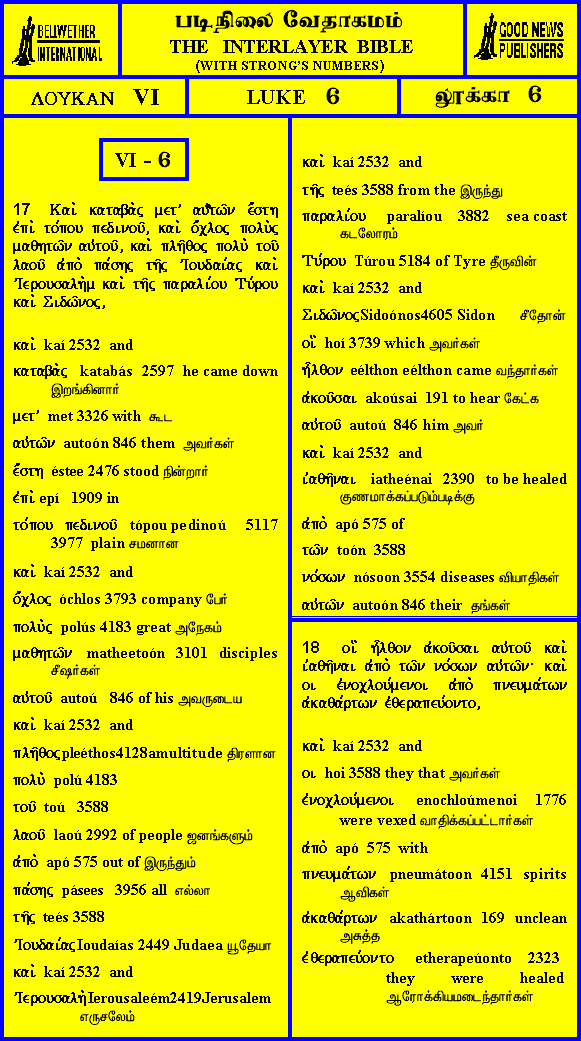 BELLWETHER
INTERNATIONAL
படிநிலை வேதாகமம்
THE INTERLAYER BIBLE
(WITH STRONG'S NUMBERS)
GOOD NEWS
PUBLISHERS
ΛΟΥΚΑΝ VI
LUKE 6
லூக்கா 6
VI - 6
17 Καὶ καταβὰς μετ’ αὐτῶν ἔστη
ἐπὶ τόπου πεδινοῦ, καὶ ὄχλος πολὺς
μαθητῶν αὐτοῦ, καὶ πλῆθος πολὺ τοῦ
λαοῦ ἀπὸ πάσης τῆς Ἰουδαίας καὶ
Ἰερουσαλὴμ καὶ τῆς παραλίου Τύρου
καὶ Σιδῶνος,
καὶ kaí 2532 and
καταβὰς katabás 2597 he came down
இறங்கினார்
μετ’ met 3326 with கூட
αὐτῶν autoón 846 them அவர்கள்
ἔστη éstee 2476 stood நின்றார்
ἐπὶ epí 1909 in
τόπου πεδινοῦ tópou pedinoú 5117
3977 plain சமனான
καὶ kaí 2532 and
ὄχλος óchlos 3793 company பேர்
πολὺς polús 4183 great அநேகம்
μαθητῶν matheetoón 3101 disciples
சீஷர்கள்
αὐτοῦ autoú 846 of his அவருடைய
καὶ kaí 2532 and
πλῆθος pleéthos4128amultitude திரளான
πολὺ polú 4183
τοῦ toú 3588
λαοῦ laoú 2992 of people ஜனங்களும்
ἀπὸ apó 575 out of இருந்தும்
πάσης pásees 3956 all எல்லா
τῆς teés 3588
Ἰουδαίας Ioudaías 2449 Judaea யூதேயா
καὶ kaí 2532 and
Ἰερουσαλὴ Ierousaleém2419Jerusalem
எருசலேம்
καὶ kaí 2532 and
τῆς teés 3588 from the இருந்து
παραλίου paralíou 3882 sea coast
கடலோரம்
Τύρου Túrou 5184 of Tyre தீருவின்
καὶ kaí 2532 and
Σιδῶνος Sidoónos4605 Sidon சீதோன்
οἳ hoí 3739 which அவர்கள்
ἦλθον eélthon eélthon came வந்தார்கள்
ἀκοῦσαι akoúsai 191 to hear கேட்க
αὐτοῦ autoú 846 him அவர்
καὶ kaí 2532 and
ἰαθῆναι iatheénai 2390 to be healed
குணமாக்கப்படும்படிக்கு
ἀπὸ apó 575 of
τῶν toón 3588
νόσων nósoon 3554 diseases வியாதிகள்
αὐτῶν autoón 846 their தங்கள்
18 οἳ ἦλθον ἀκοῦσαι αὐτοῦ καὶ
ἰαθῆναι ἀπὸ τῶν νόσων αὐτῶν· καὶ
οι ἐνοχλούμενοι ἀπὸ πνευμάτων
ἀκαθάρτων ἐθεραπεύοντο,
καὶ kaí 2532 and
οι hoi 3588 they that அவர்கள்
ἐνοχλούμενοι enochloúmenoi 1776
were vexed வாதிக்கப்பட்டார்கள்
ἀπὸ apó 575 with
πνευμάτων pneumátoon 4151 spirits
ஆவிகள்
ἀκαθάρτων akathártoon 169 unclean
அசுத்த
ἐθεραπεύοντο etherapeúonto 2323
they were healed
ஆரோக்கியமடைந்தார்கள்